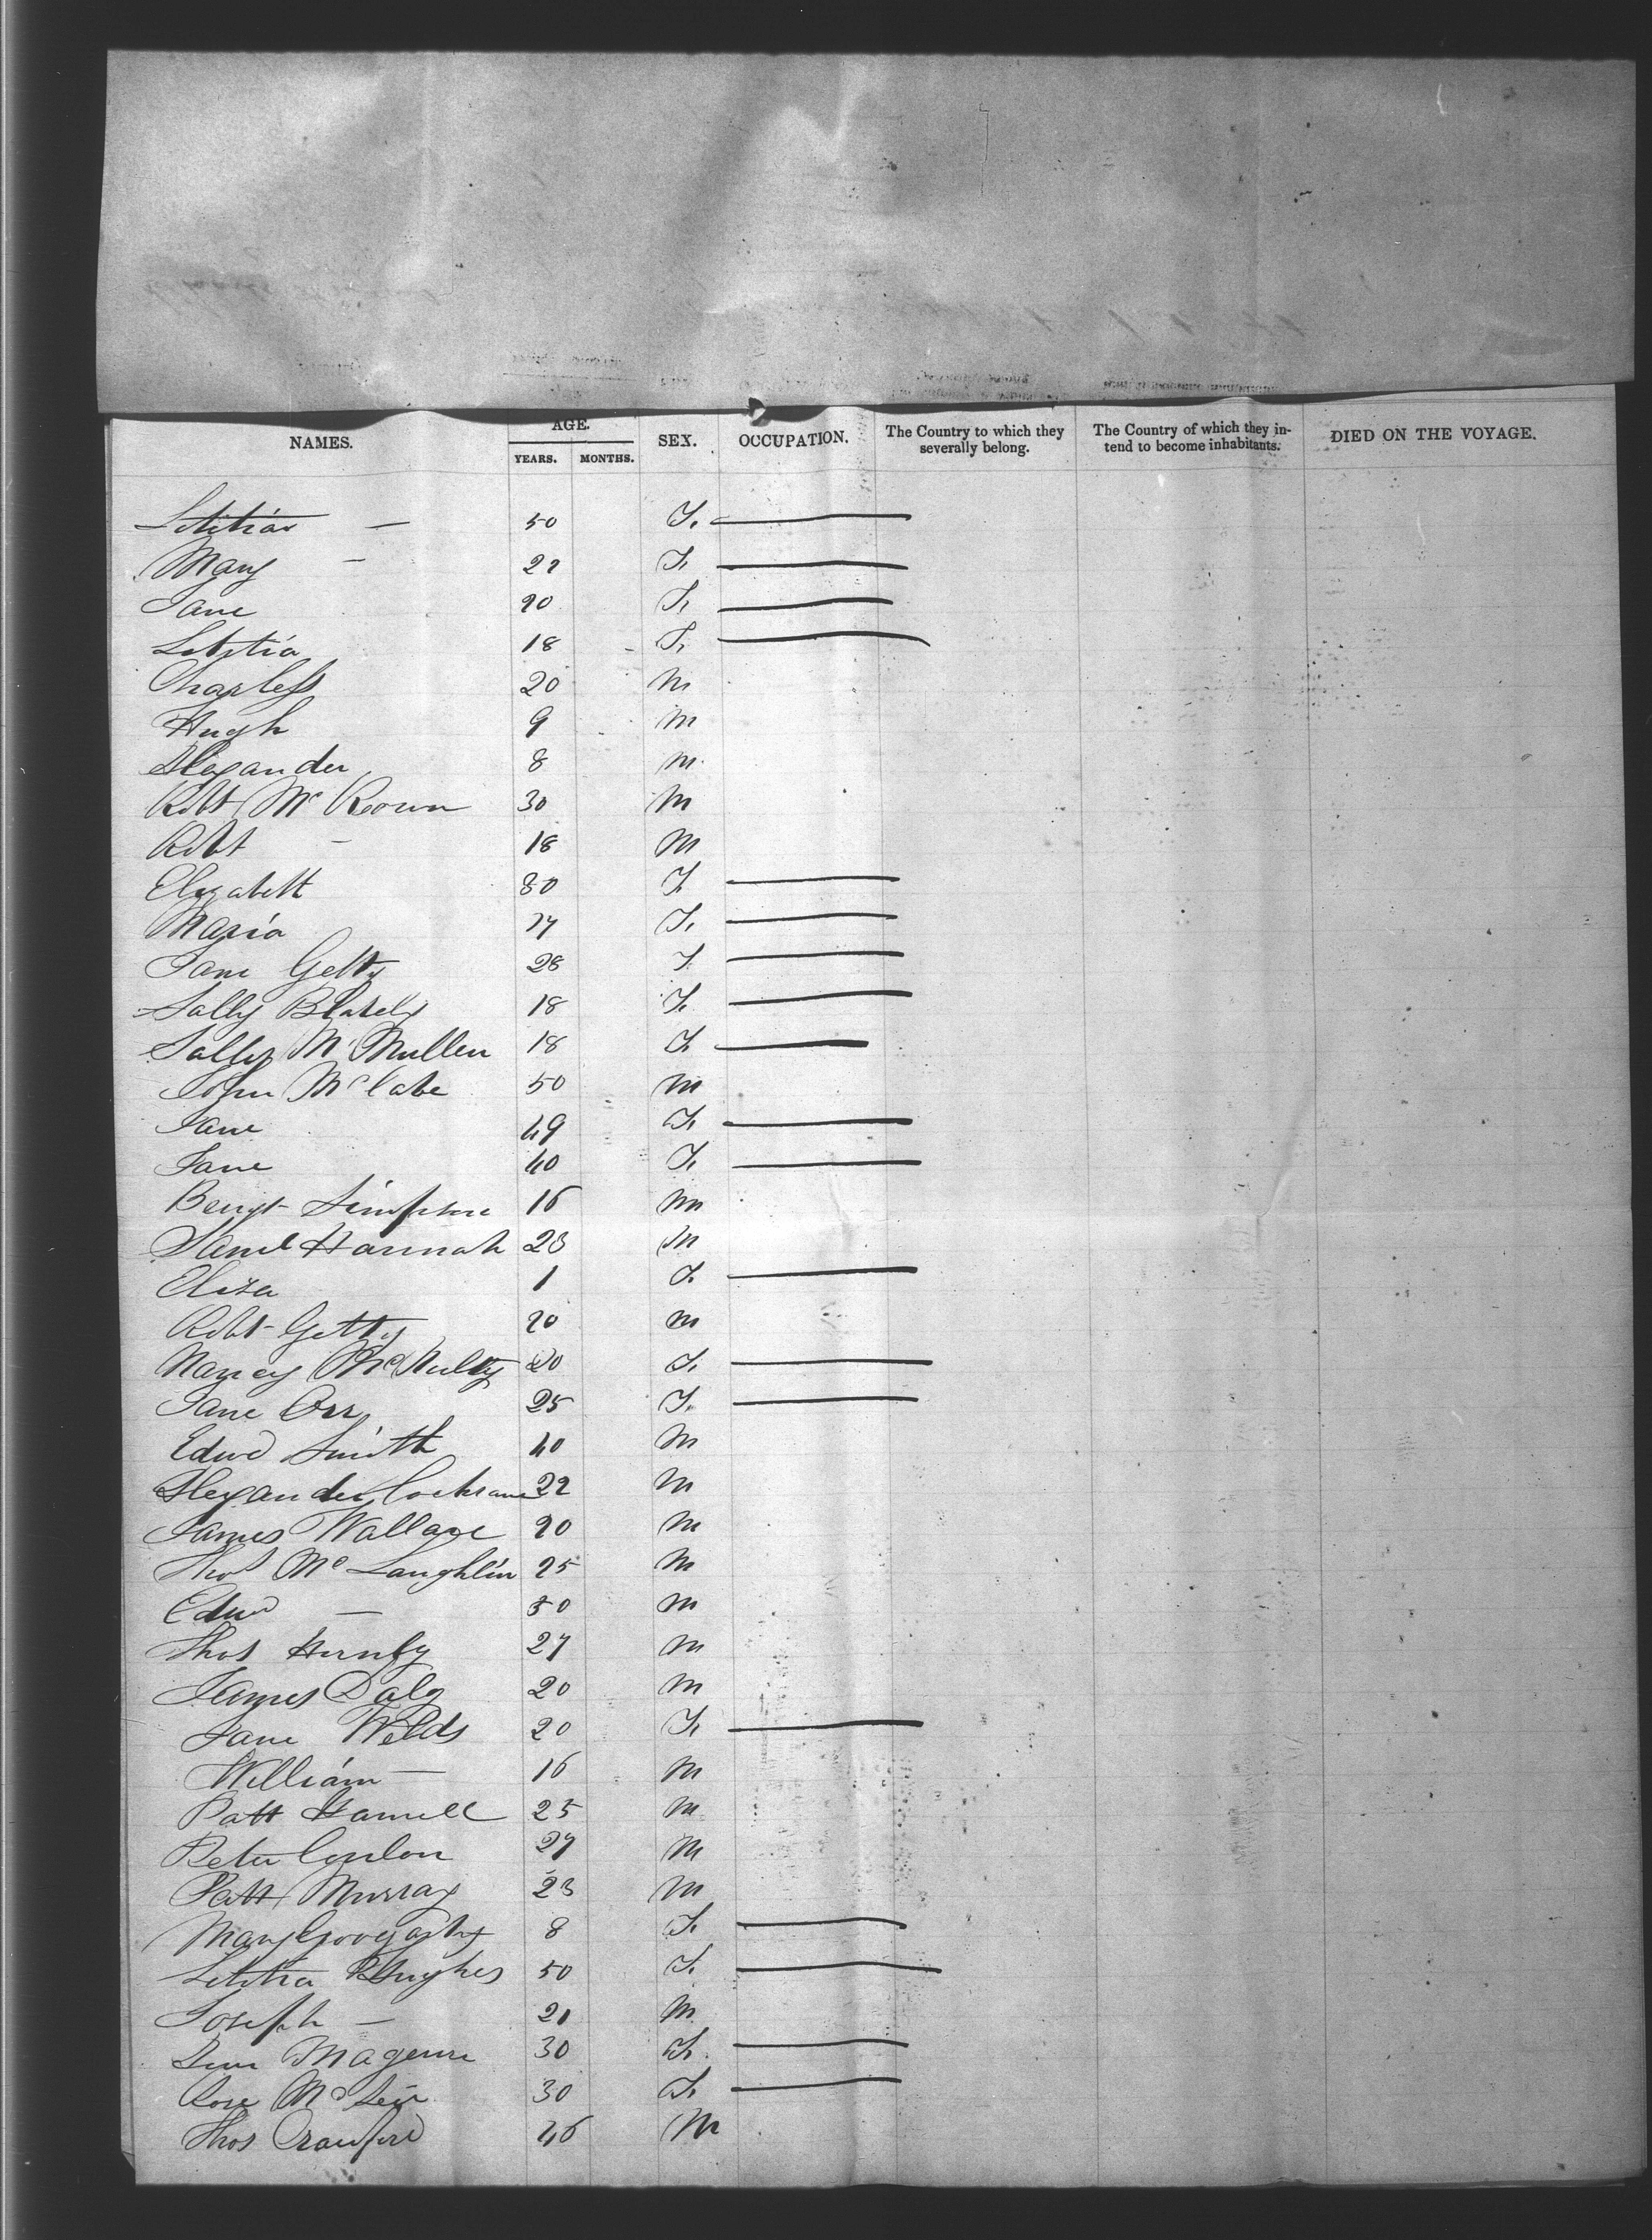 NAMES. AGE. SEX. OCCUPATION. The Country to which they severally belong. The Country of which they intend to become inhabitants. DIED ON THE VOYAGE.
YEARS. MONTHS.
Letitia — 50 F.
Mary — 22 F.
Jane 20 F.
Letitia 18 F.
Charless 20 M
Hugh 9 M
Alexander 8 M
Robt McKeown 30 M
Robt — 18 M
Elizabeth F
Maria F.
Jane Getty 28 F
Sally Blakely 18 F.
Sally McMullen 18 F.
John McCabe 50 M
Jane 49 F.
Jane 40 F.
Benjn Simpson 16 M
Saml Hannah 23 M
Eliza 1 F.
Robt Getty 20 M
Nancy McNulty 20 F.
Jane Orr 25 F.
Edwd Smith 40 M
Alexander Cochrane 22 M
James Wallace 20 M
Thos McLaughlin 25 M
Edwd — M
Thos 27 M
James Daly 20 M
Jane Welds 20 F.
William — 16 M
Patt Hamill 25 M
Peter Conlon 27 M
Patt Murray 23 M
Mary 8 F.
Letitia Hughes 50 F.
Joseph — 21 M
Magenn 30 F.
Rose 30 F.
Thos Crawford 46 M